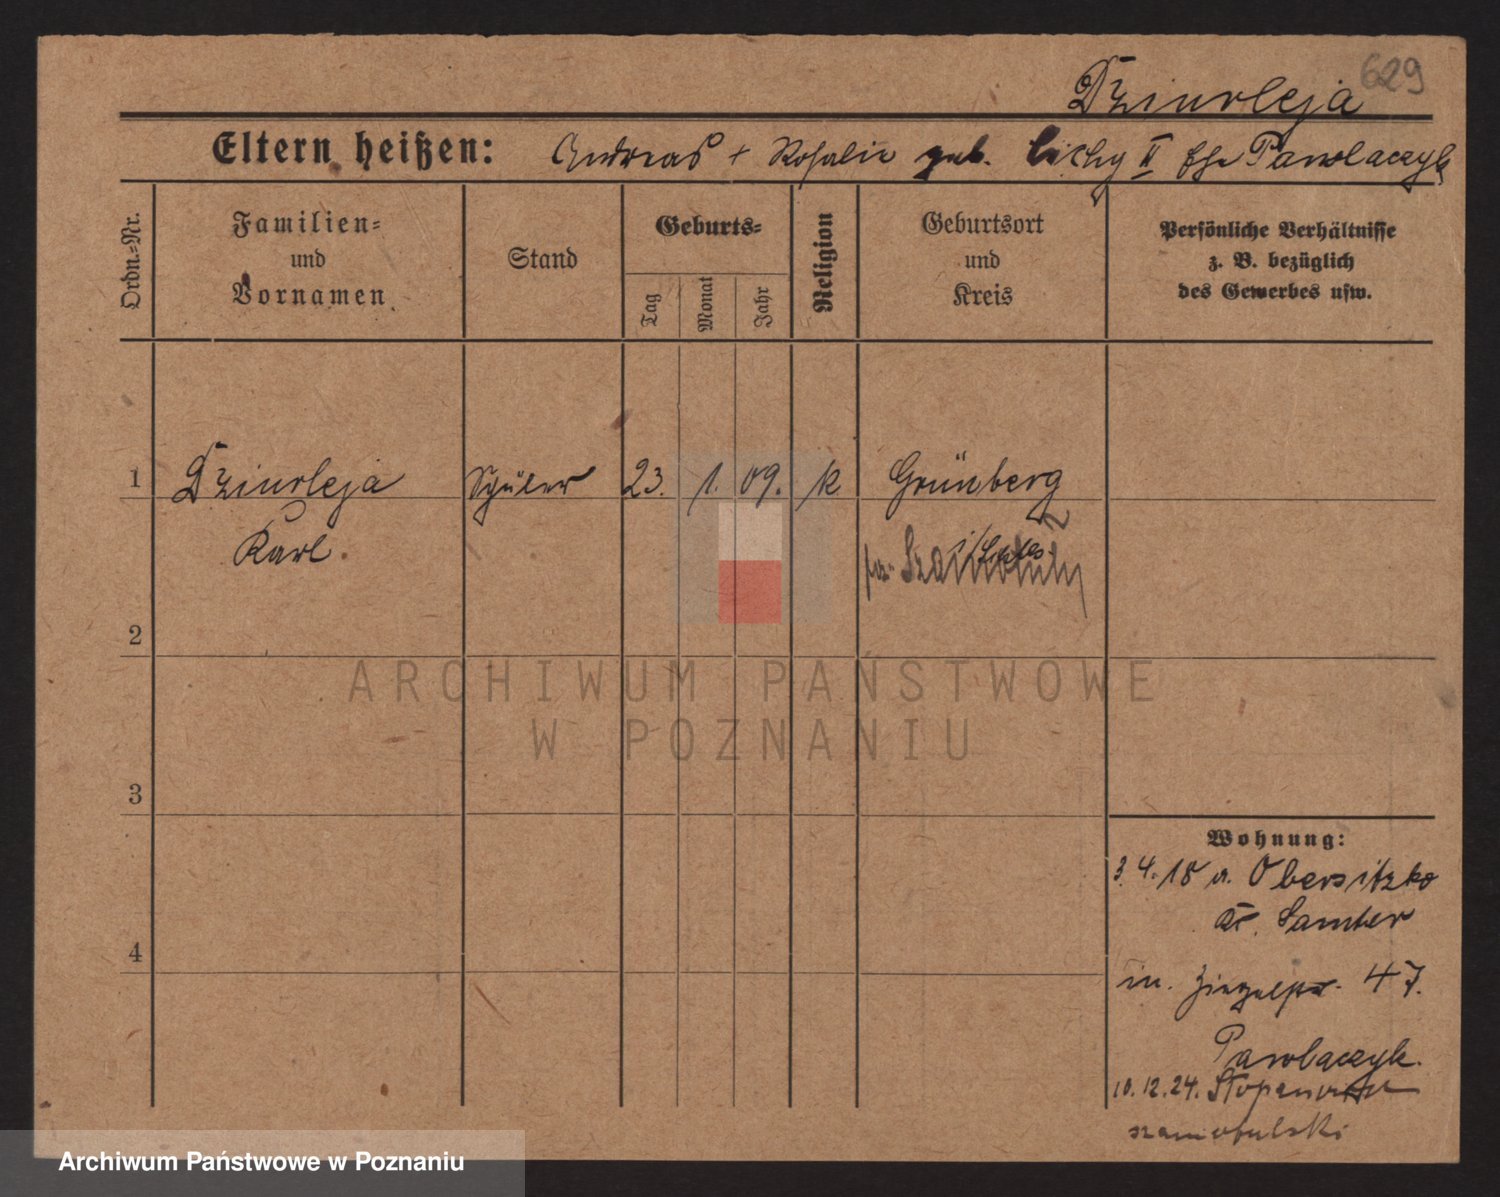 629
Dziurleja
Eltern heißen: Andreas + Rosalie geb. Cichy II Ehe Pawlaczyk
Ordn.=Nr.
Familien=
und
Vornamen
Stand
Geburts=
Tag
Monat
Jahr
Religion
Geburtsort
und
Kreis
Persönliche Verhältnisse
z. B. bezüglich
des Gewerbes usw.
1 Dziurleja Schüler 23. 1. 09. k. Grünberg
Karl.
pow. Szamotuly
2
3
4
Wohnung:
3.4.18 a. Obersitzko
Kr. Samter
in. Ziegelstr. 47.
Pawlaczyk.
10.12.24.
szamotulski
ARCHIWUM PAŃSTWOWE
W POZNANIU
Archiwum Państwowe w Poznaniu